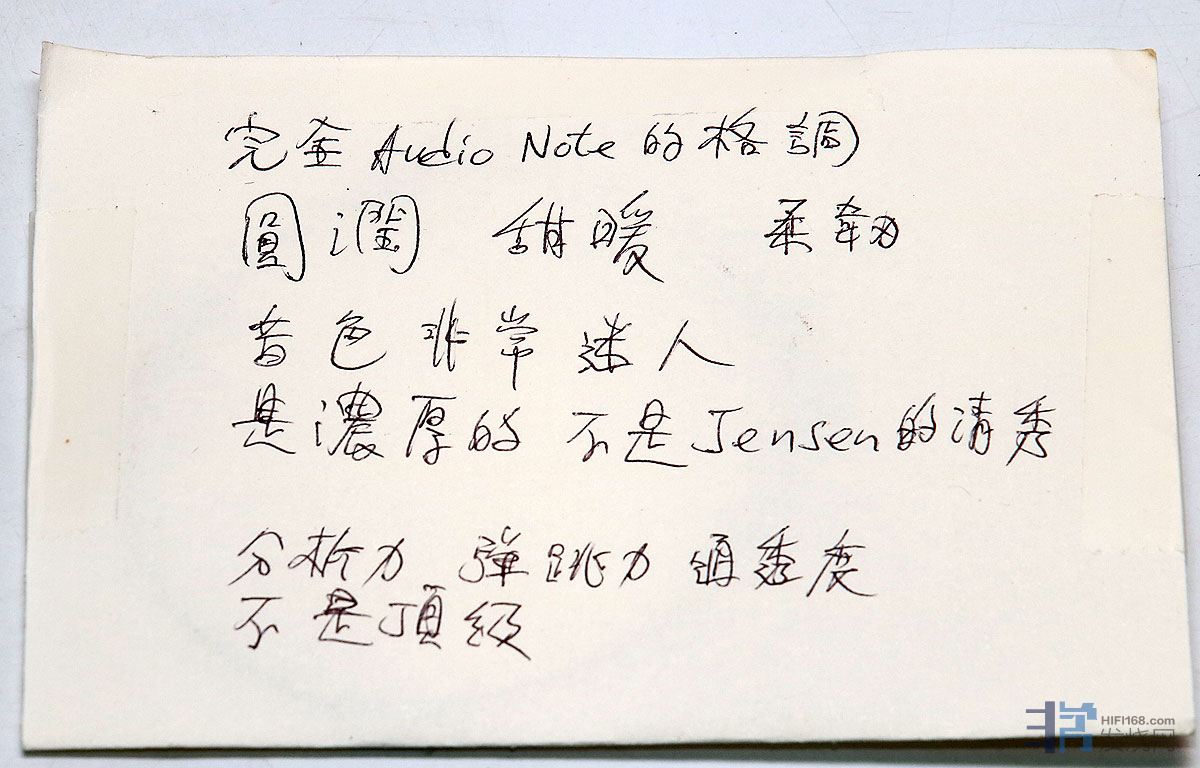 完全 Audio Note 的格調
圓潤 甜暖 柔韌
音色非常迷人
是濃厚的 不是Jensen的清秀
分析力 彈跳力 通透度
不是頂級
HIFI168.com
发烧网